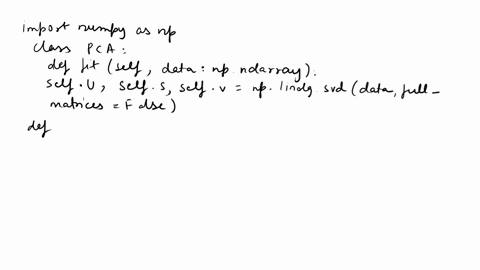 import numpy as np
class PCA:
def fit (self, data: np. ndarray).
self.U, self.S, self.v = np.linalg svd(data, full_
matrices = False)
def